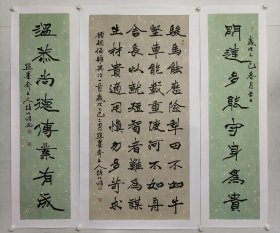 明道多能守身為貴
駿馬能歷險犁田不如牛
堅車能載重渡河不如舟
舍長以就短智者難為謀
生材貴適用慎勿多苛求
温恭尚德傳業有成